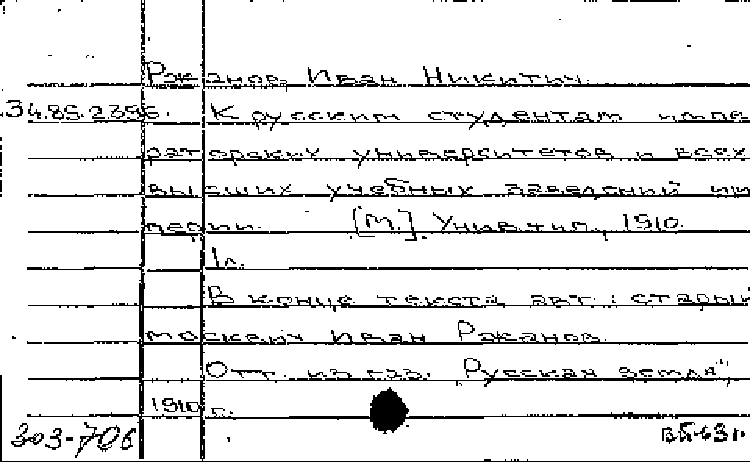 Ржанов, Иван Никитич.
34.85.2396. К русским студентам импе
раторских университетов и всех
высших учебных заведений им
перии. [М.], Унив. тип., 1910.
1л.
В конце текста авт.: старый
москвич Иван Ржанов.
Отт. из газ. "Русская земля",
1910 г.
303-706